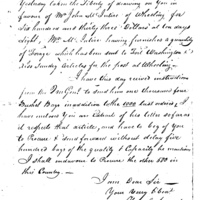 Yesterday taken the Liberty of drawing on you in
favour of Mr John McIntire of Wheeling for
Six hundred and thirty three Dollars at ten days
sight, Mr McIntire having furnished a quantity
of Forage which has been sent to Fort Washington &
also sundry Articles for the post at Wheeling—
I have this day received instructions
from the to send him one thousand four
Bushel Bags in addition to the 1000 last ordered, I
have inclose you an Extract of his letter so far as
it respects that article, and have to beg of you
to Procure & send forward without delay five
hundred bags of the quality & Capacity he mentions
I shall endeavour to Procure the other 500 in
this Country.—
I am Dear Sir—
Your very Obent